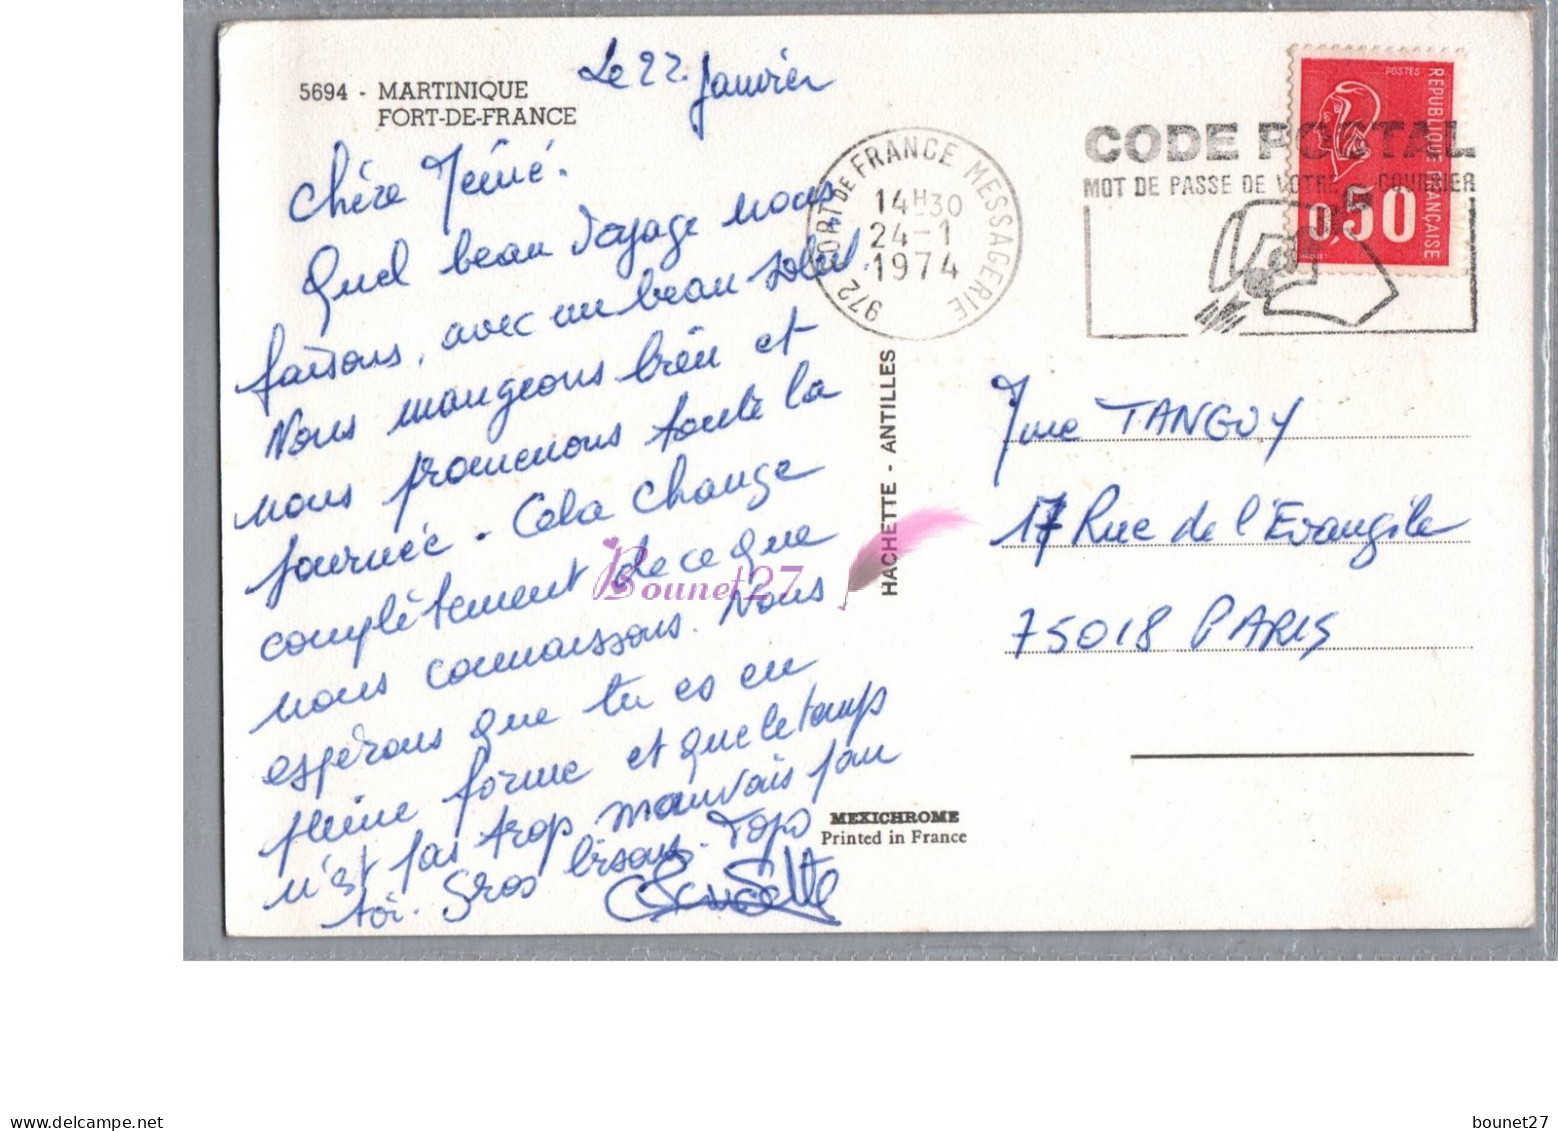 5694 - MARTINIQUE
FORT-DE-FRANCE
Le 22 Janvier
Chère Mémé.
Quel beau voyage nous
faisons, avec un beau soleil.
Nous mangeons bien et
nous promenons toute la
journée - Cela change
complètement de ce que
nous connaissons. Nous
espérons que tu es en
pleine forme et que le temps
n'est pas trop mauvais pour
toi. Gros bisous.
972 FORT DE FRANCE MESSAGERIE
14H30
24-1
1974
CODE POSTAL
MOT DE PASSE DE VOTRE COURRIER
POSTES
REPUBLIQUE FRANÇAISE
0,50
HACHETTE - ANTILLES
Mme TANGUY
17 Rue de l'Evangile
75018 PARIS
MEXICHROME
Printed in France
Bounet27
delcampe.net
bounet27